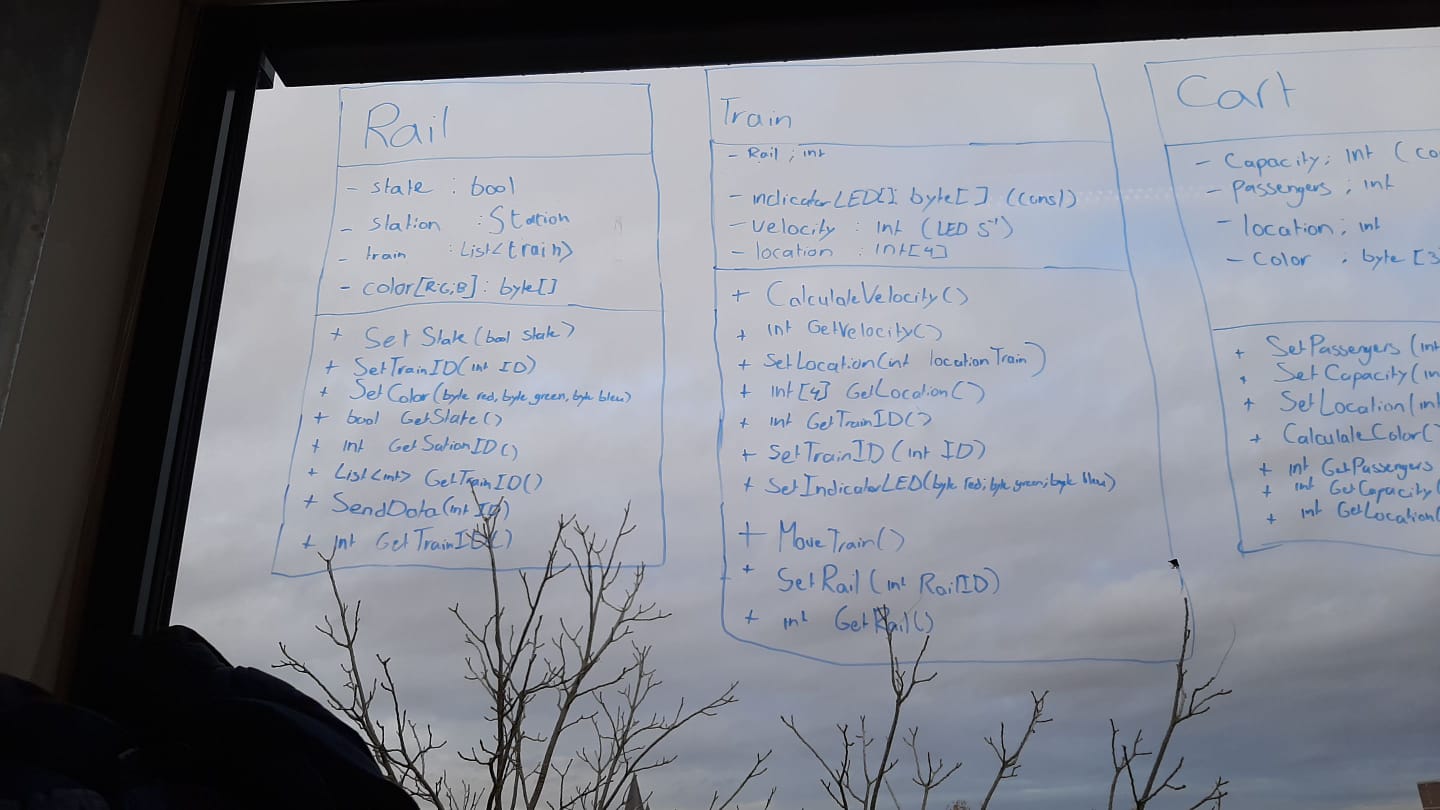 Rail
- state : bool
- station : Station
- train : List<train>
- color[R,G,B] : byte[]
+ SetState(bool state)
+ SetTrainID(int ID)
+ SetColor(byte red, byte green, byte bleu)
+ bool GetState()
+ int GetSationID()
+ List<int> GetTrainID()
+ SendData(int ID)
+ int GetTrainID()
Train
- Rail ; int
- indicatorLED[]: byte[] (const)
- velocity : int (LED s⁻¹)
- location : int[4]
+ CalculateVelocity()
+ int GetVelocity()
+ SetLocation(int locationTrain)
+ int[4] GetLocation()
+ int GetTrainID()
+ SetTrainID(int ID)
+ SetIndicatorLED(byte red; byte green; byte bleu)
+ MoveTrain()
+ SetRail(int RailID)
+ int GetRail()
Cart
- Capacity; int (co
- Passengers ; int
- location ; int
- color ; byte[3
+ SetPassengers(int
+ SetCapacity(in
+ SetLocation(int
+ CalculateColor()
+ int GetPassengers
+ int GetCapacity(
+ int GetLocation(